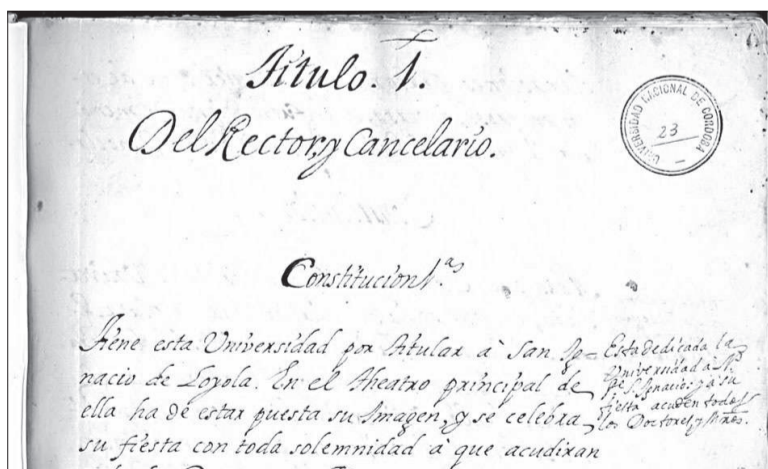 Titulo. 1.
Del Rector, y Cancelario.
UNIVERSIDAD NACIONAL DE CORDOBA
23
Constitucion 1.ª
Tiene esta Universidad por titular à San Ig=
nacio de Loyola. En el theatro principal de
ella ha de estar puesta su Imagen, y se celebra
su fiesta con toda solemnidad à que acudiran
Esta dedicada la
Universidad à N.
P.e S. Ignacio: y à su
fiesta acuden todos
los Doctores, y Mros.